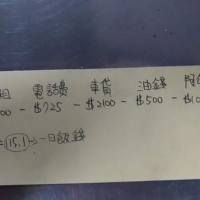 租 電話費 車貸 油錢 阿
00 - $725 - $2100 - $500 - $10
= 115.1 → 一日飯錢